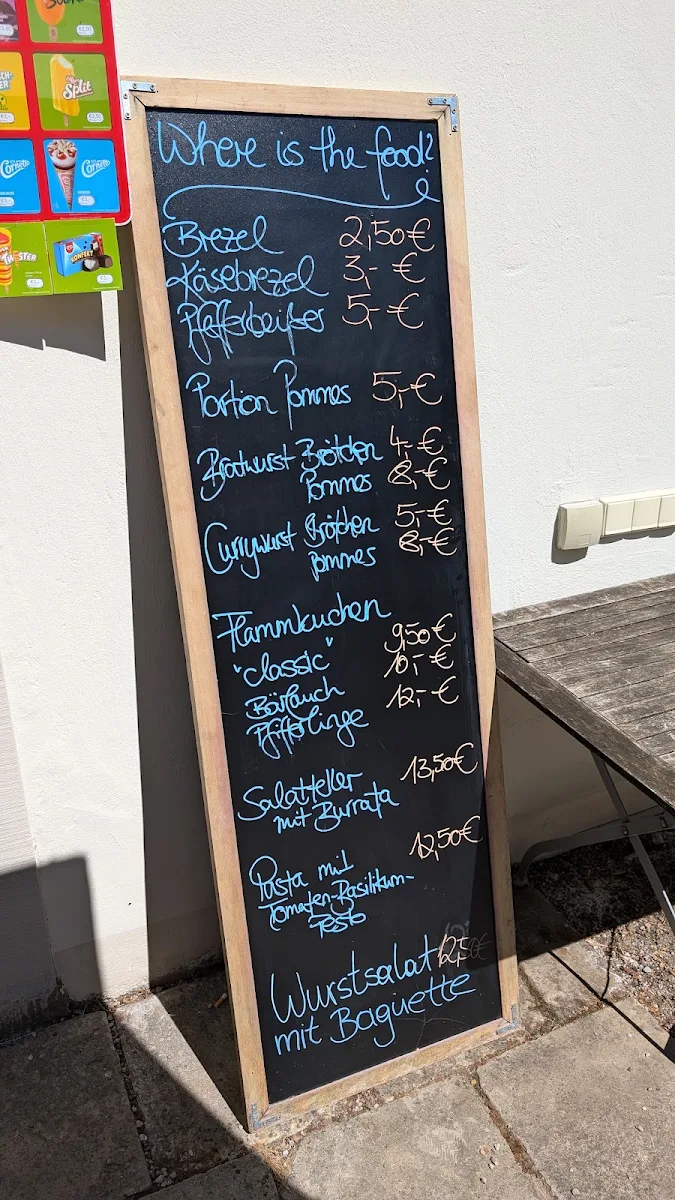 Split
Cornetto
Cornetto
TWISTER
KONFEKT
Where is the food?
Brezel 2,50€
Käsebrezel 3,- €
Pfefferbeißer 5,- €
Portion Pommes 5,-€
Bratwurst Brötchen 4,-€
Pommes 8,-€
Currywurst Brötchen 5,-€
Pommes 8,-€
Flammkuchen
"classic" 9,50€
Bärlauch 10,-€
Pfifferlinge 12,-€
Salatteller 13,50€
mit Burrata
Pasta mit 12,50€
Tomaten-Basilikum-
Pesto
Wurstsalat 12,50€
mit Baguette